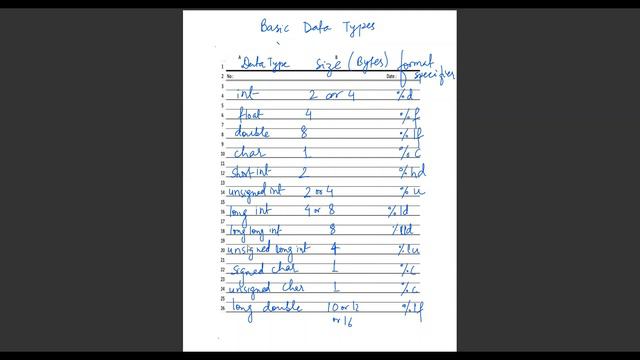 Basic Data Types
Data Type Size (Bytes) format specifier
int 2 or 4 %d
float 4 %f
double 8 %lf
char 1 %c
short int 2 %hd
unsigned int 2 or 4 %u
long int 4 or 8 %ld
long long int 8 %lld
unsigned long int 4 %lu
signed char 1 %c
unsigned char 1 %c
long double 10 or 12 or 16 %lf